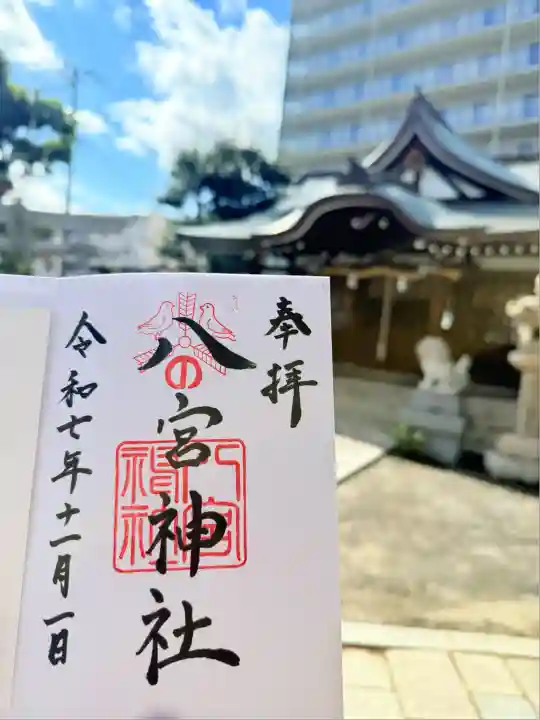 奉拝
八の宮神社
八宮
神社
令和七年十一月一日